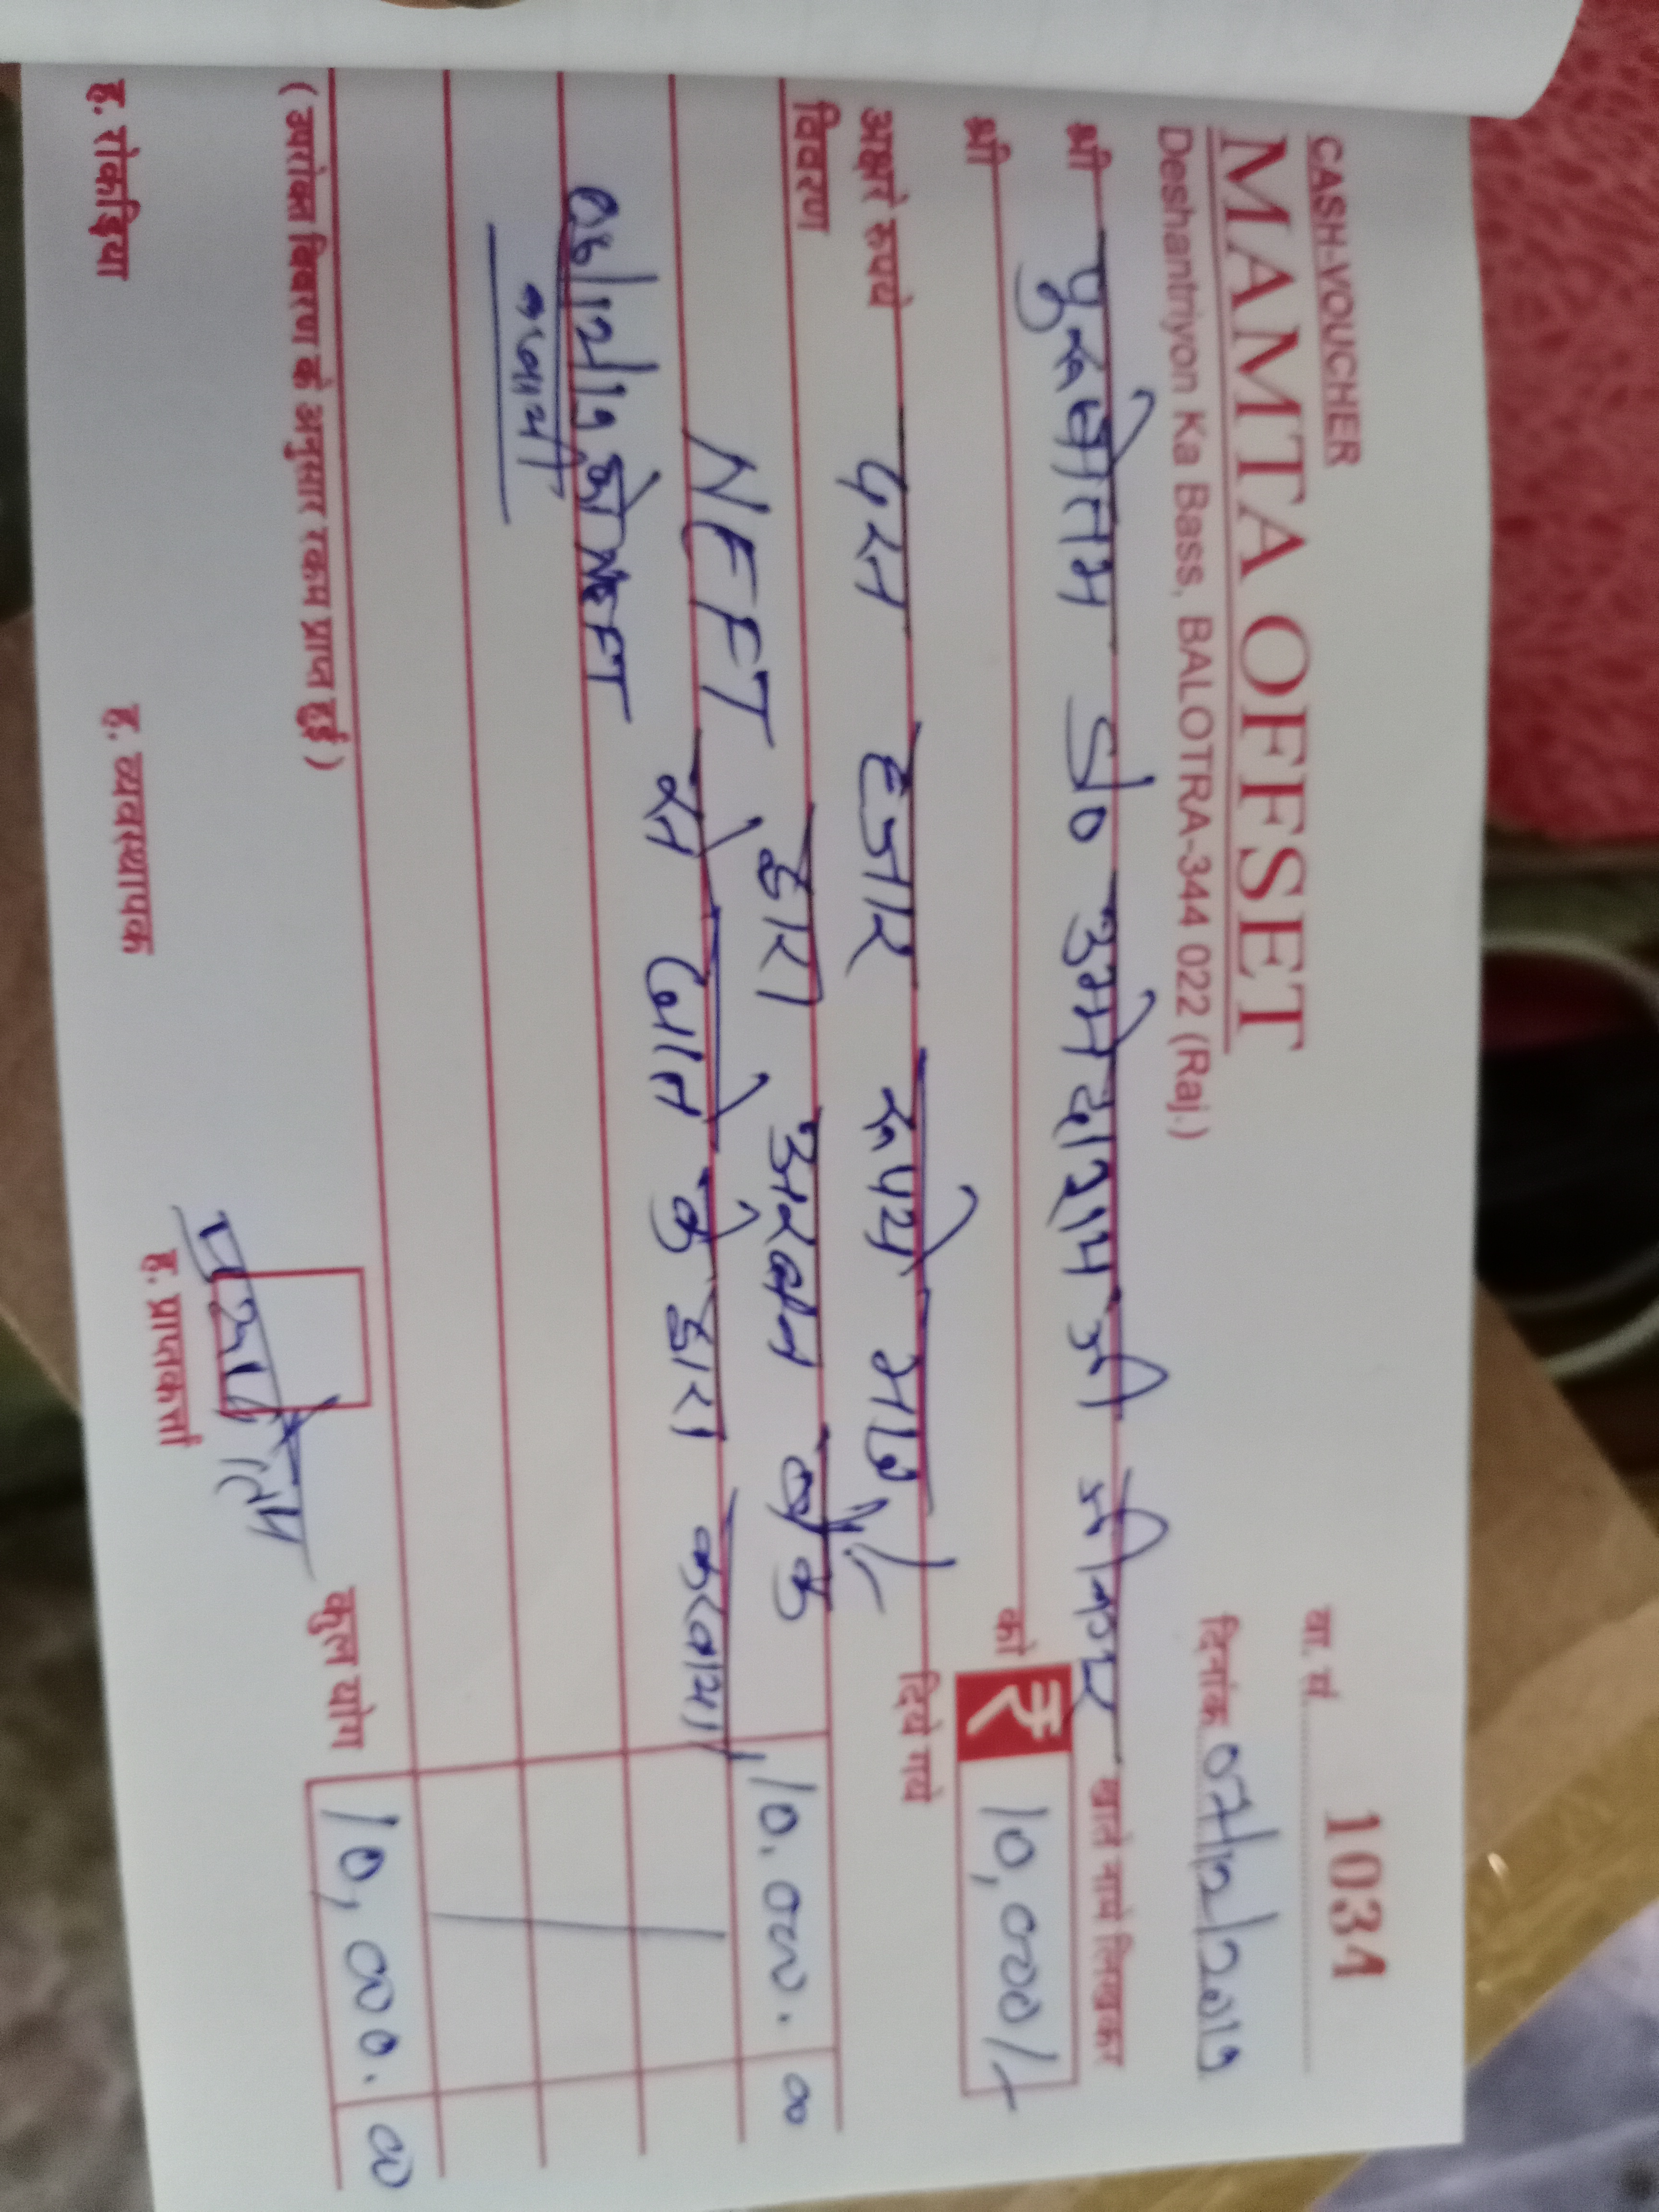 CASH-VOUCHER
वा. नं. 1034
MAMTA OFFSET
Deshantriyon Ka Bass, BALOTRA-344 022 (Raj.)
दिनांक 07/12/2019
श्री पुरूषोतम S/o उमेदाराम जी जीनगर खाते नामे लिखकर
श्री को ₹ 10,000/-
अक्षरे रुपये दस हजार रूपये मात्र दिये गये
विवरण
NEFT द्वारा अरबन बैंक 10,000.00
से खाते के द्वारा करवाया
06/12/19 को NEFT
करवाया
( उपरोक्त विवरण के अनुसार रकम प्राप्त हुई )
कूल योग 10,000.00
ह. रोकड़िया ह. व्यवस्थापक ह. प्राप्तकर्त्ता